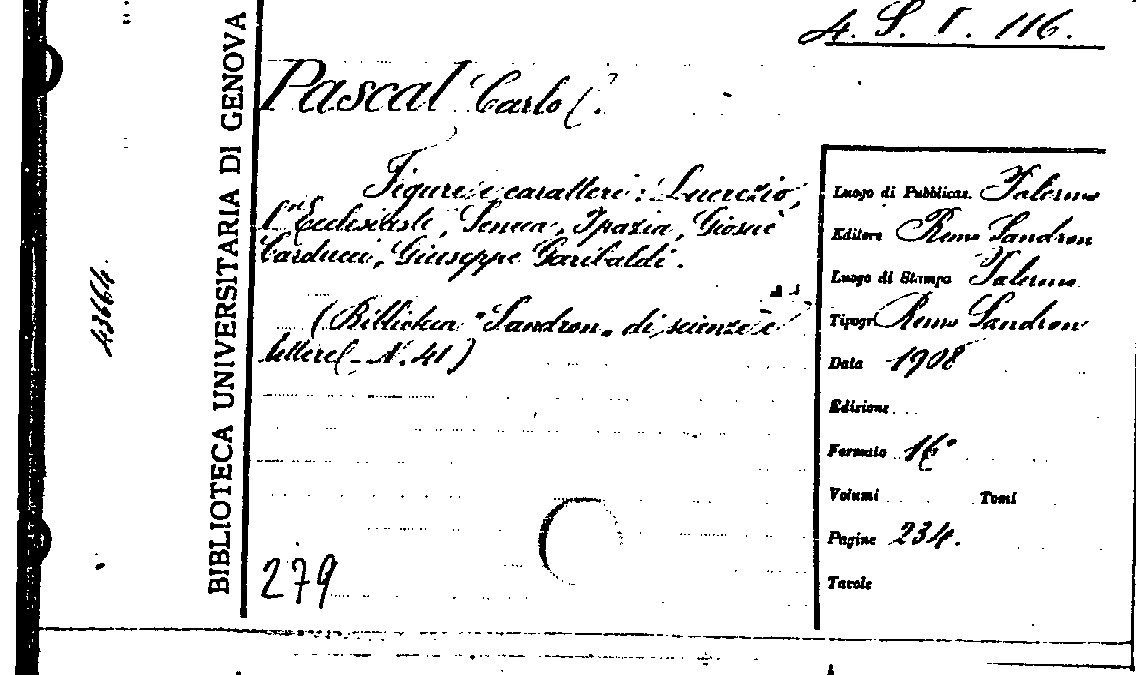 4. S. I. 116.
BIBLIOTECA UNIVERSITARIA DI GENOVA
43664.
Pascal Carlo C.
Figure e caratteri: Lucrezio,
l'Ecclesiaste, Seneca, Ipazia, Giosuè
Carducci, Giuseppe Garibaldi.
(Biblioteca "Sandron" di scienze e
lettere - N. 41)
279
Luogo di Pubblicaz. Palermo
Editore Remo Sandron
Luogo di Stampa Palermo
Tipogr. Remo Sandron
Data 1908
Edizione
Formato 16°
Volumi Tomi
Pagine 234.
Tavole